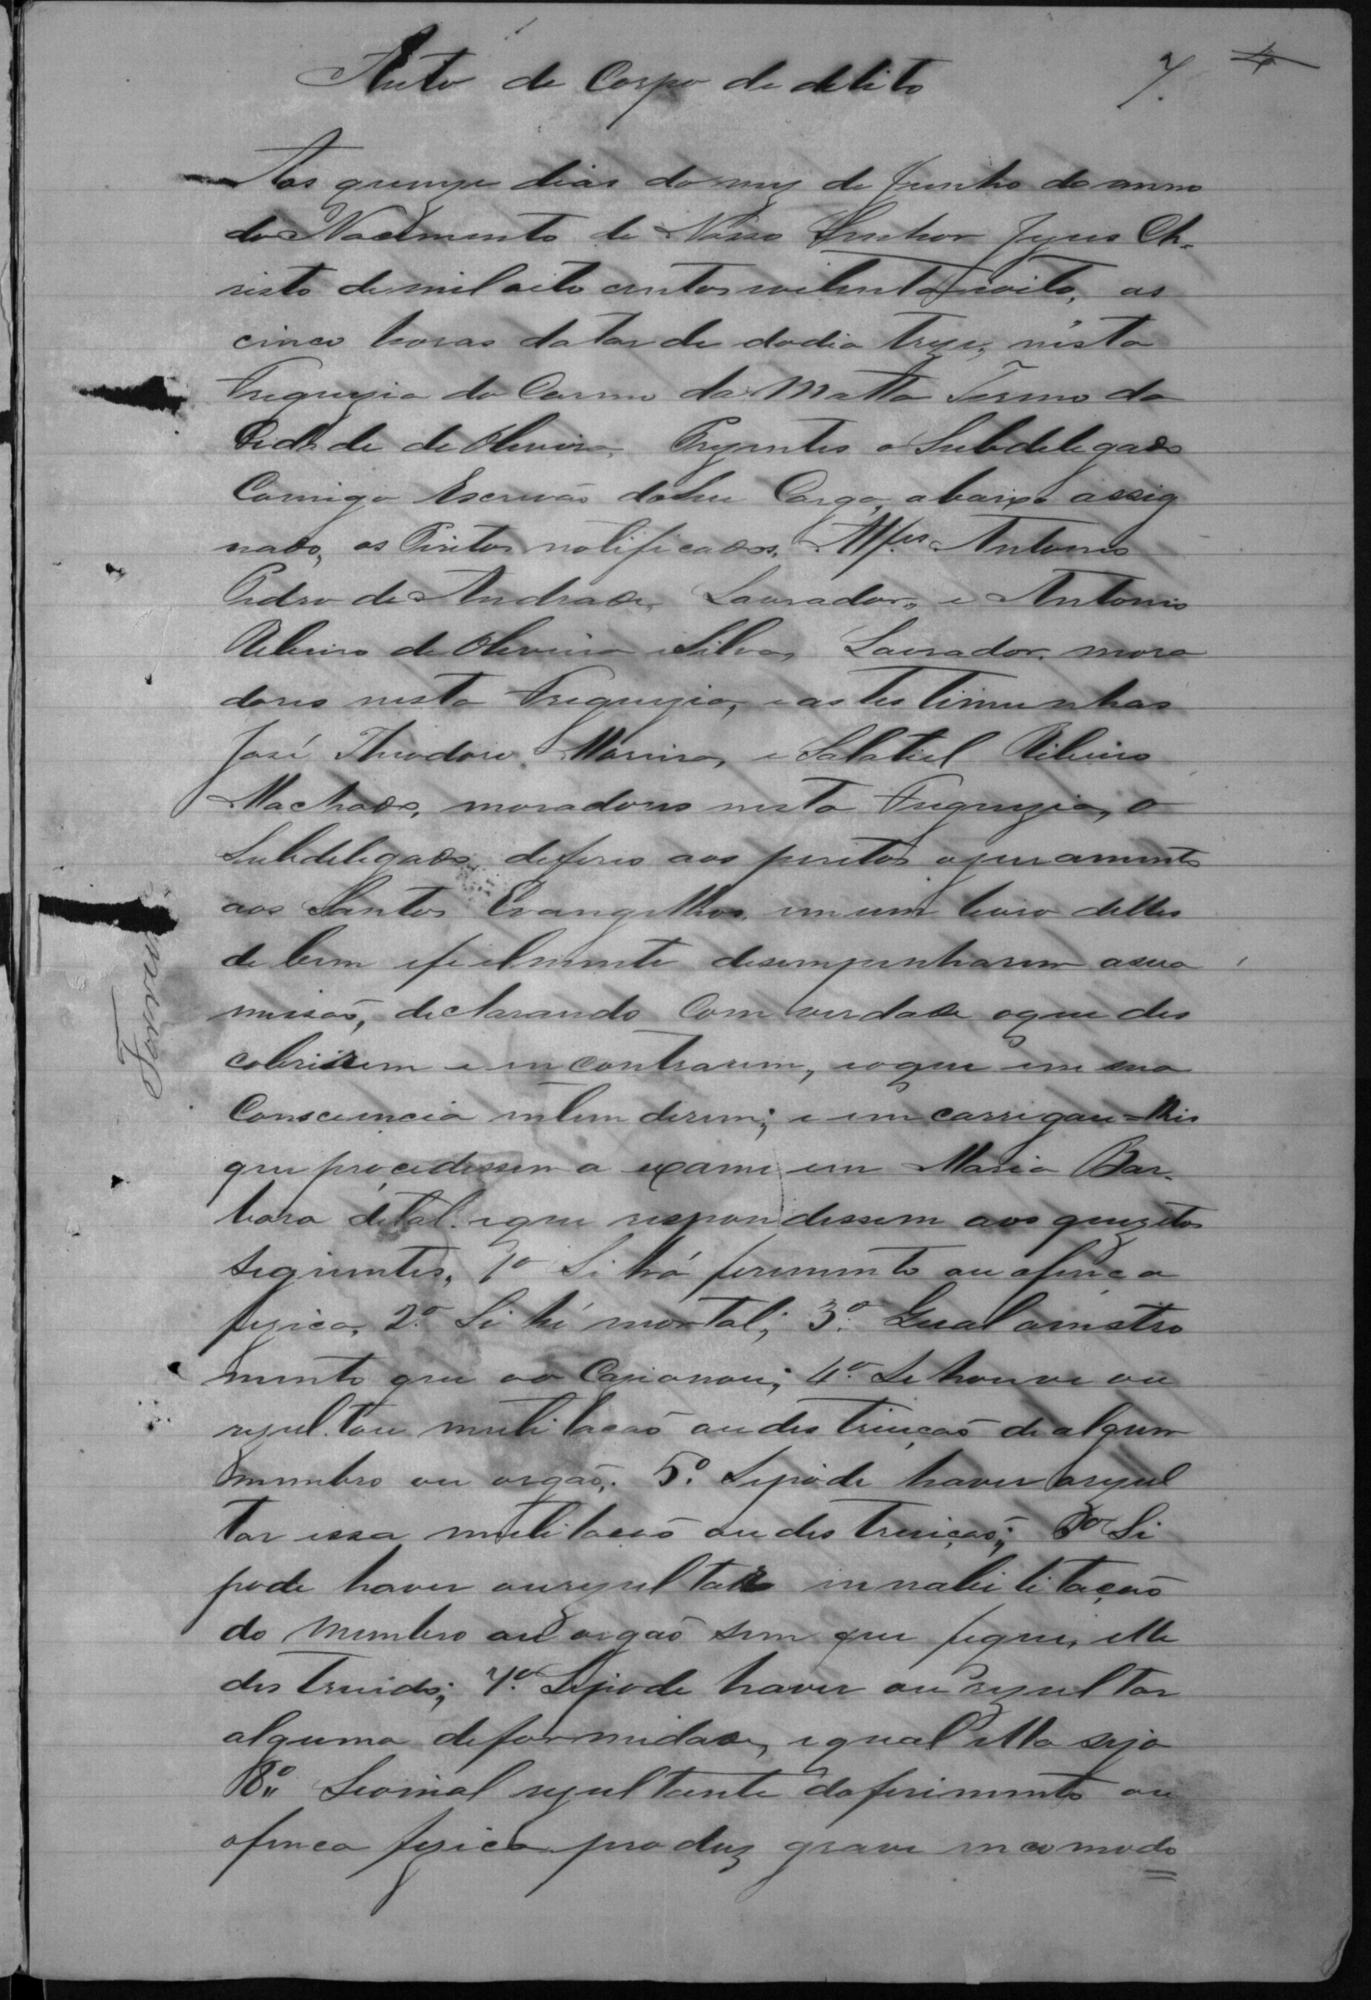 Auto de Corpo de delito 7. 4
Aos quinze dias do mez de Junho do anno
do Nacimento de Nosso Senhor Jezus Ch-
risto de mil oito centos e oitenta e oito, as
cinco horas da tarde do dia treze, nésta
Freguezia do Carmo da Matta Termo da
Cidade de Oliveira, Prezentes o Subdelegado
Comigo Escrivão do seu Cargo, abaixo assig
nado, os Peritos notificados, Alfes Antonio
Pedro de Andrade, Lavrador, e Antonio
Ribeiro de Oliveira e Silva, Lavrador, mora
dores nesta Freguezia, e as testimunhas
José Theodoro Moreira, e Salatiel Ribeiro
Machado, moradores nesta Freguezia, o
Subdelegado, deferio aos peritos o juramento
aos Santos Evangelhos, em um livro delles
de bem e fielmente desempenharem a sua
missão, declarando Com verdade o que des
cobrirem e incontrarem, e o que em sua
Consciencia intenderem; e emcarrigou=lhis
que procedessem a exame em Maria Bar-
bara de tal. e que respondessem aos quezitos
seguintes, 1º Si há ferimento ou ofença
fizica, 2º. Si hé mortal; 3º. Qual o instro
mento que os Cazionou; 4º. Se houve ou
rezultou mutilacão ou destruição de algum
membro ou orgão; 5º. Se póde haver o rezul
tar essa mutilacão ou destruição; 6º Si
pode haver ou rezultar innabilitação
do membro ou orgão sem que fique, elle
destruido; 7º. Se pode haver ou rezultar
alguma deformidade, e qual ella seja
8º. Se o mal rezultante do ferimento ou
ofenca fizica produz grave incomodo